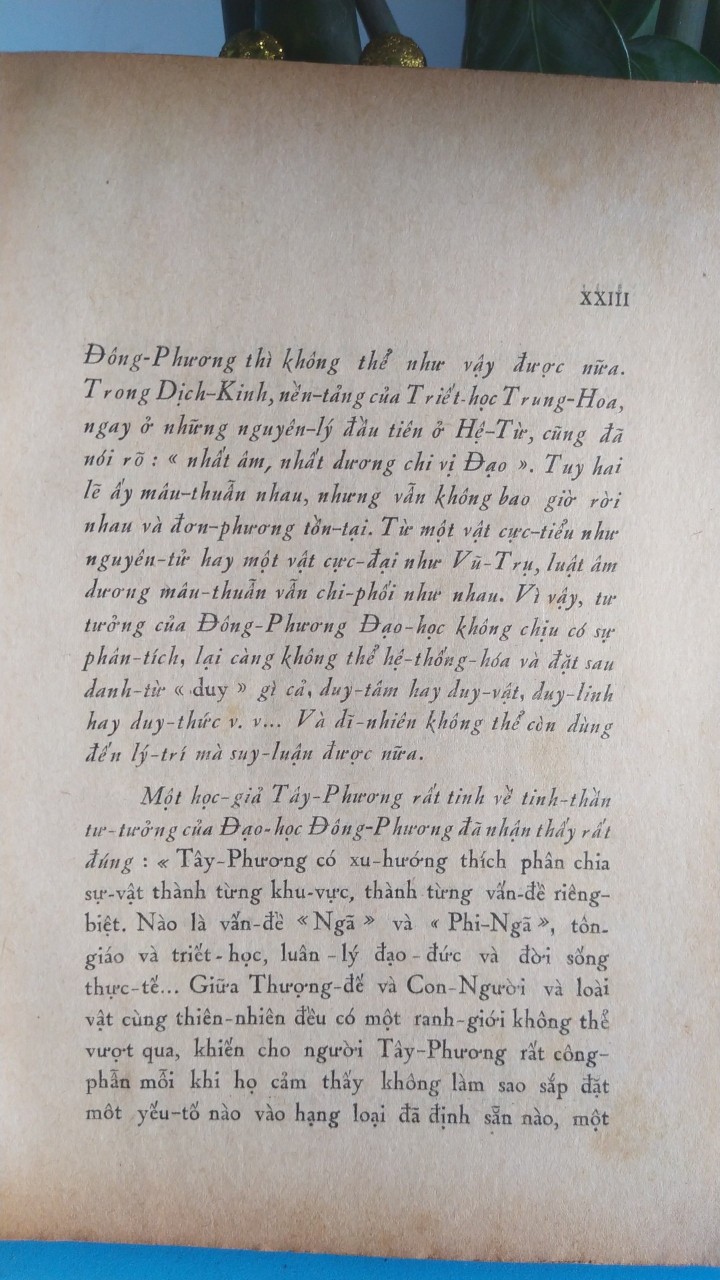 XXIII
Đông-Phương thì không thể như vậy được nữa.
Trong Dịch-Kinh, nền-tảng của Triết-học Trung-Hoa,
ngay ở những nguyên-lý đầu tiên ở Hệ-Từ, cũng đã
nói rõ : « nhất âm, nhất dương chi vị Đạo ». Tuy hai
lẽ ấy mâu-thuẫn nhau, nhưng vẫn không bao giờ rời
nhau và đơn-phương tồn-tại. Từ một vật cực-tiểu như
nguyên-tử hay một vật cực-đại như Vũ-Trụ, luật âm
dương mâu-thuẫn vẫn chi-phối như nhau. Vì vậy, tư
tưởng của Đông-Phương Đạo-học không chịu có sự
phân-tích, lại càng không thể hệ-thống-hóa và đặt sau
danh-từ « duy » gì cả, duy-tâm hay duy-vật, duy-linh
hay duy-thức v. v... Và dĩ-nhiên không thể còn dùng
đến lý-trí mà suy-luận được nữa.
Một học-giả Tây-Phương rất tinh về tinh-thần
tư-tưởng của Đạo-học Đông-Phương đã nhận thấy rất
đúng : « Tây-Phương có xu-hướng thích phân chia
sự-vật thành từng khu-vực, thành từng vấn-đề riêng-
biệt. Nào là vấn-đề «Ngã» và « Phi-Ngã», tôn-
giáo và triết-học, luân-lý đạo-đức và đời sống
thực-tế... Giữa Thượng-đế và Con-Người và loài
vật cùng thiên-nhiên đều có một ranh-giới không thể
vượt qua, khiến cho người Tây-Phương rất công-
phẫn mỗi khi họ cảm thấy không làm sao sắp đặt
môt yếu-tố nào vào hạng loại đã định sẵn nào, một